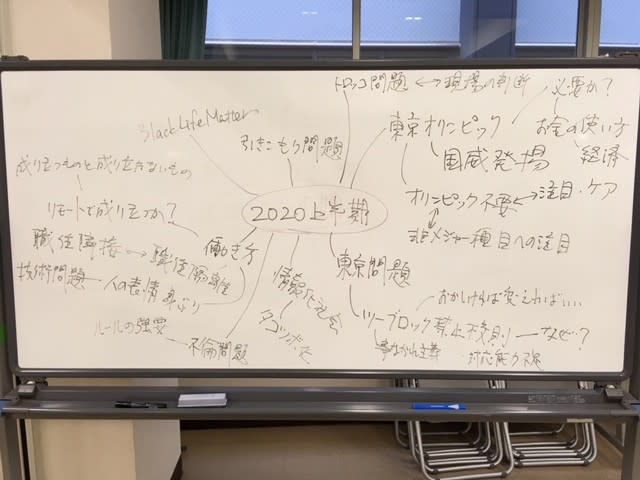 トロッコ問題 ←→ 現場の判断
必要か?
Black Life Matter
引きこもり問題
東京オリンピック
お金の使い方
経済
国威発揚
成り立つものと成り立たないもの
オリンピック不要 ←→ 注目・ケア
リモートで成り立つか?
2020上半期
非メジャー種目への注目
働き方
職住隣接 → 職住
東京問題
技術問題 人の表情 身ぶり
情報化社会
タコツボ化
おかしければ変えればいい
ルールの強要
不倫問題
ツーブロック禁止校則 なぜ…?
事なかれ主義
対応能力